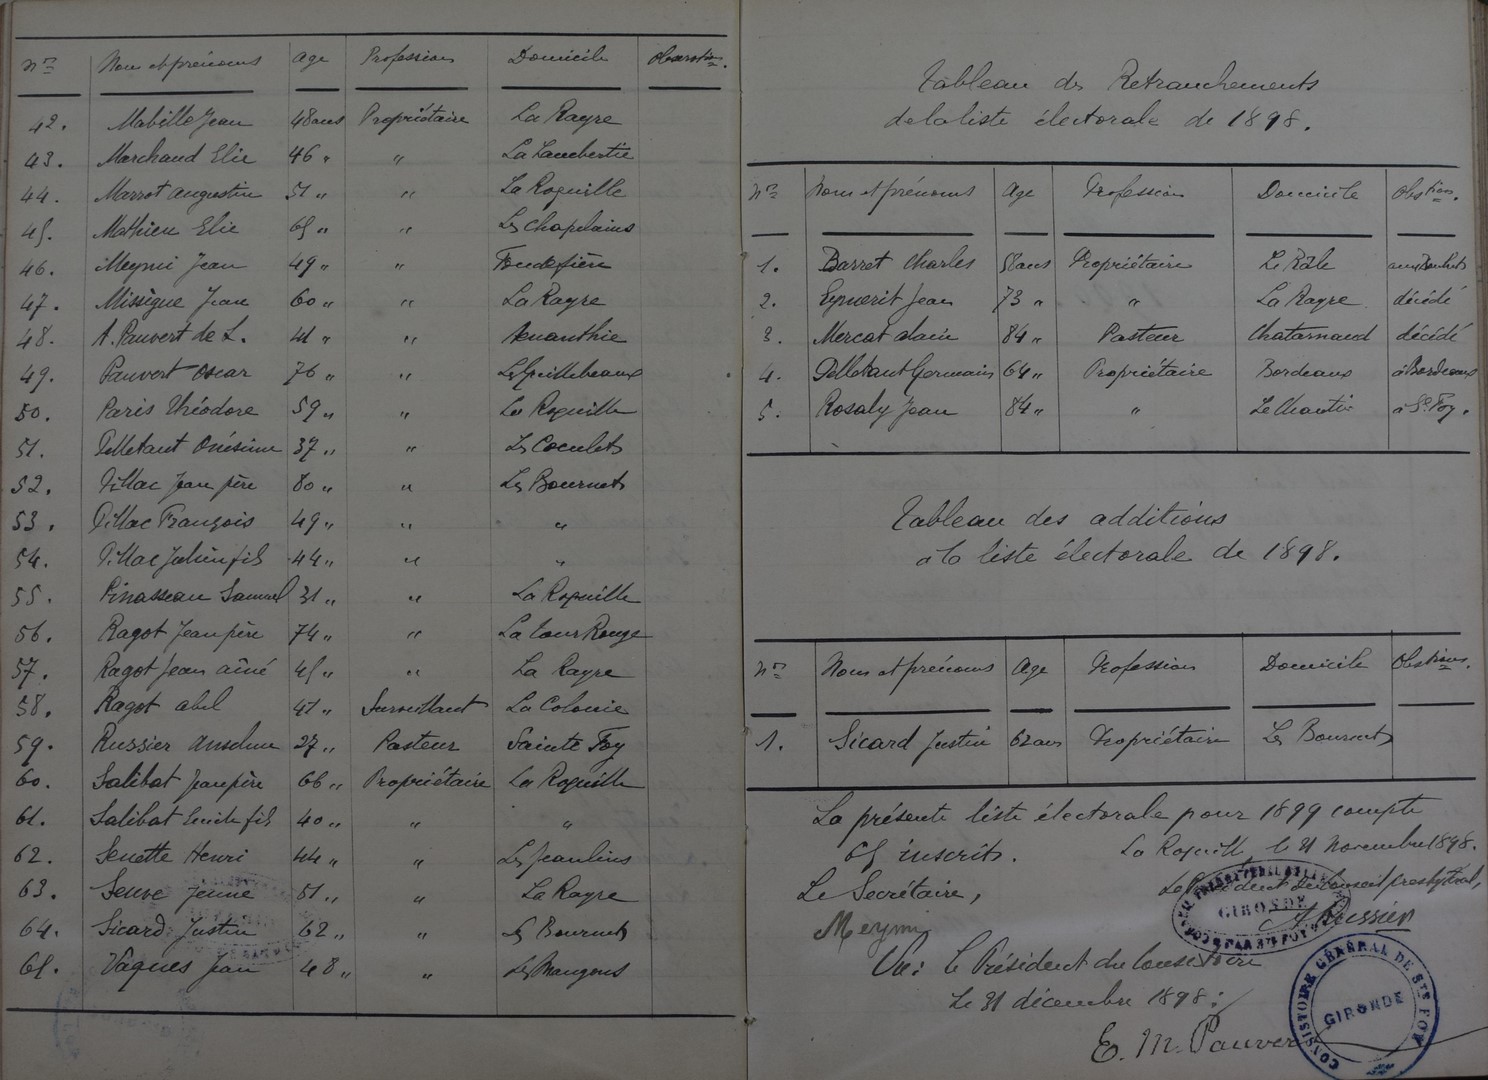 Nos Noms et prénoms Age Profession Domicile Observations.
42. Mabille Jean 48 ans Propriétaire La Rayre
43. Marchaud Elie 46 " " La Lambertie
44. Marrot Augustin 51 " " La Roquille
45. Mathieu Elie 65 " " Les Chapelains
46. Meymi Jean 49 " " Fondefière
47. Missègue Jean 60 " " La Rayre
48. A. Pauvert de L. 41 " " Œnanthie
49. Pauvert Oscar 76 " " Les Guillebeaux
50. Paris Théodore 59 " " La Roquille
51. Pelletant Onésime 37 " " Les Coculets
52. Pillac Jean père 80 " " Les Bournets
53. Pillac François 49 " " "
54. Pillac Julien fils 44 " " "
55. Pinasseau Samuel 31 " " La Roquille
56. Ragot Jean père 74 " " La Tour Rouge
57. Ragot Jean aîné 45 " " La Rayre
58. Ragot Abel 41 " Surveillant La Colonie
59. Russier Anselme 27 " Pasteur Sainte Foy
60. Salibat Jean père 66 " Propriétaire La Roquille
61. Salibat Emile fils 40 " " "
62. Senette Henri 44 " " Les Jeanlins
63. Seuve Jeune 51 " " La Rayre
64. Sicard Justin 62 " " Les Bournets
65. Vaques Jean 48 " " Les Maugens
Tableau des Retranchements
de la liste électorale de 1898.
Nos Noms et prénoms Age Profession Domicile Obstions.
1. Barret Charles 58 ans Propriétaire Le Râle aux
2. Eymerit Jean 73 " " La Rayre décédé
3. Mercat Alain 84 " Pasteur Chatarnaud décédé
4. Pelletant Germain 64 " Propriétaire Bordeaux à Bordeaux
5. Rosaly Jean 84 " " Le à Ste Foy.
Tableau des additions
à la liste électorale de 1898.
Nos Noms et prénoms Age Profession Domicile Obstions.
1. Sicard Justin 62 ans Propriétaire Les Bournets
La présente liste électorale pour 1899 compte
65 inscrits. La Roquille, le 21 novembre 1898.
Le Secrétaire, Le Président du Conseil presbytéral,
Meymi A Russier
GIRONDE
Vu: le Président du Consistoire
Le 31 décembre 1898:
E. M. Pauvert
CONSISTOIRE GÉNÉRAL DE STE FOY
GIRONDE